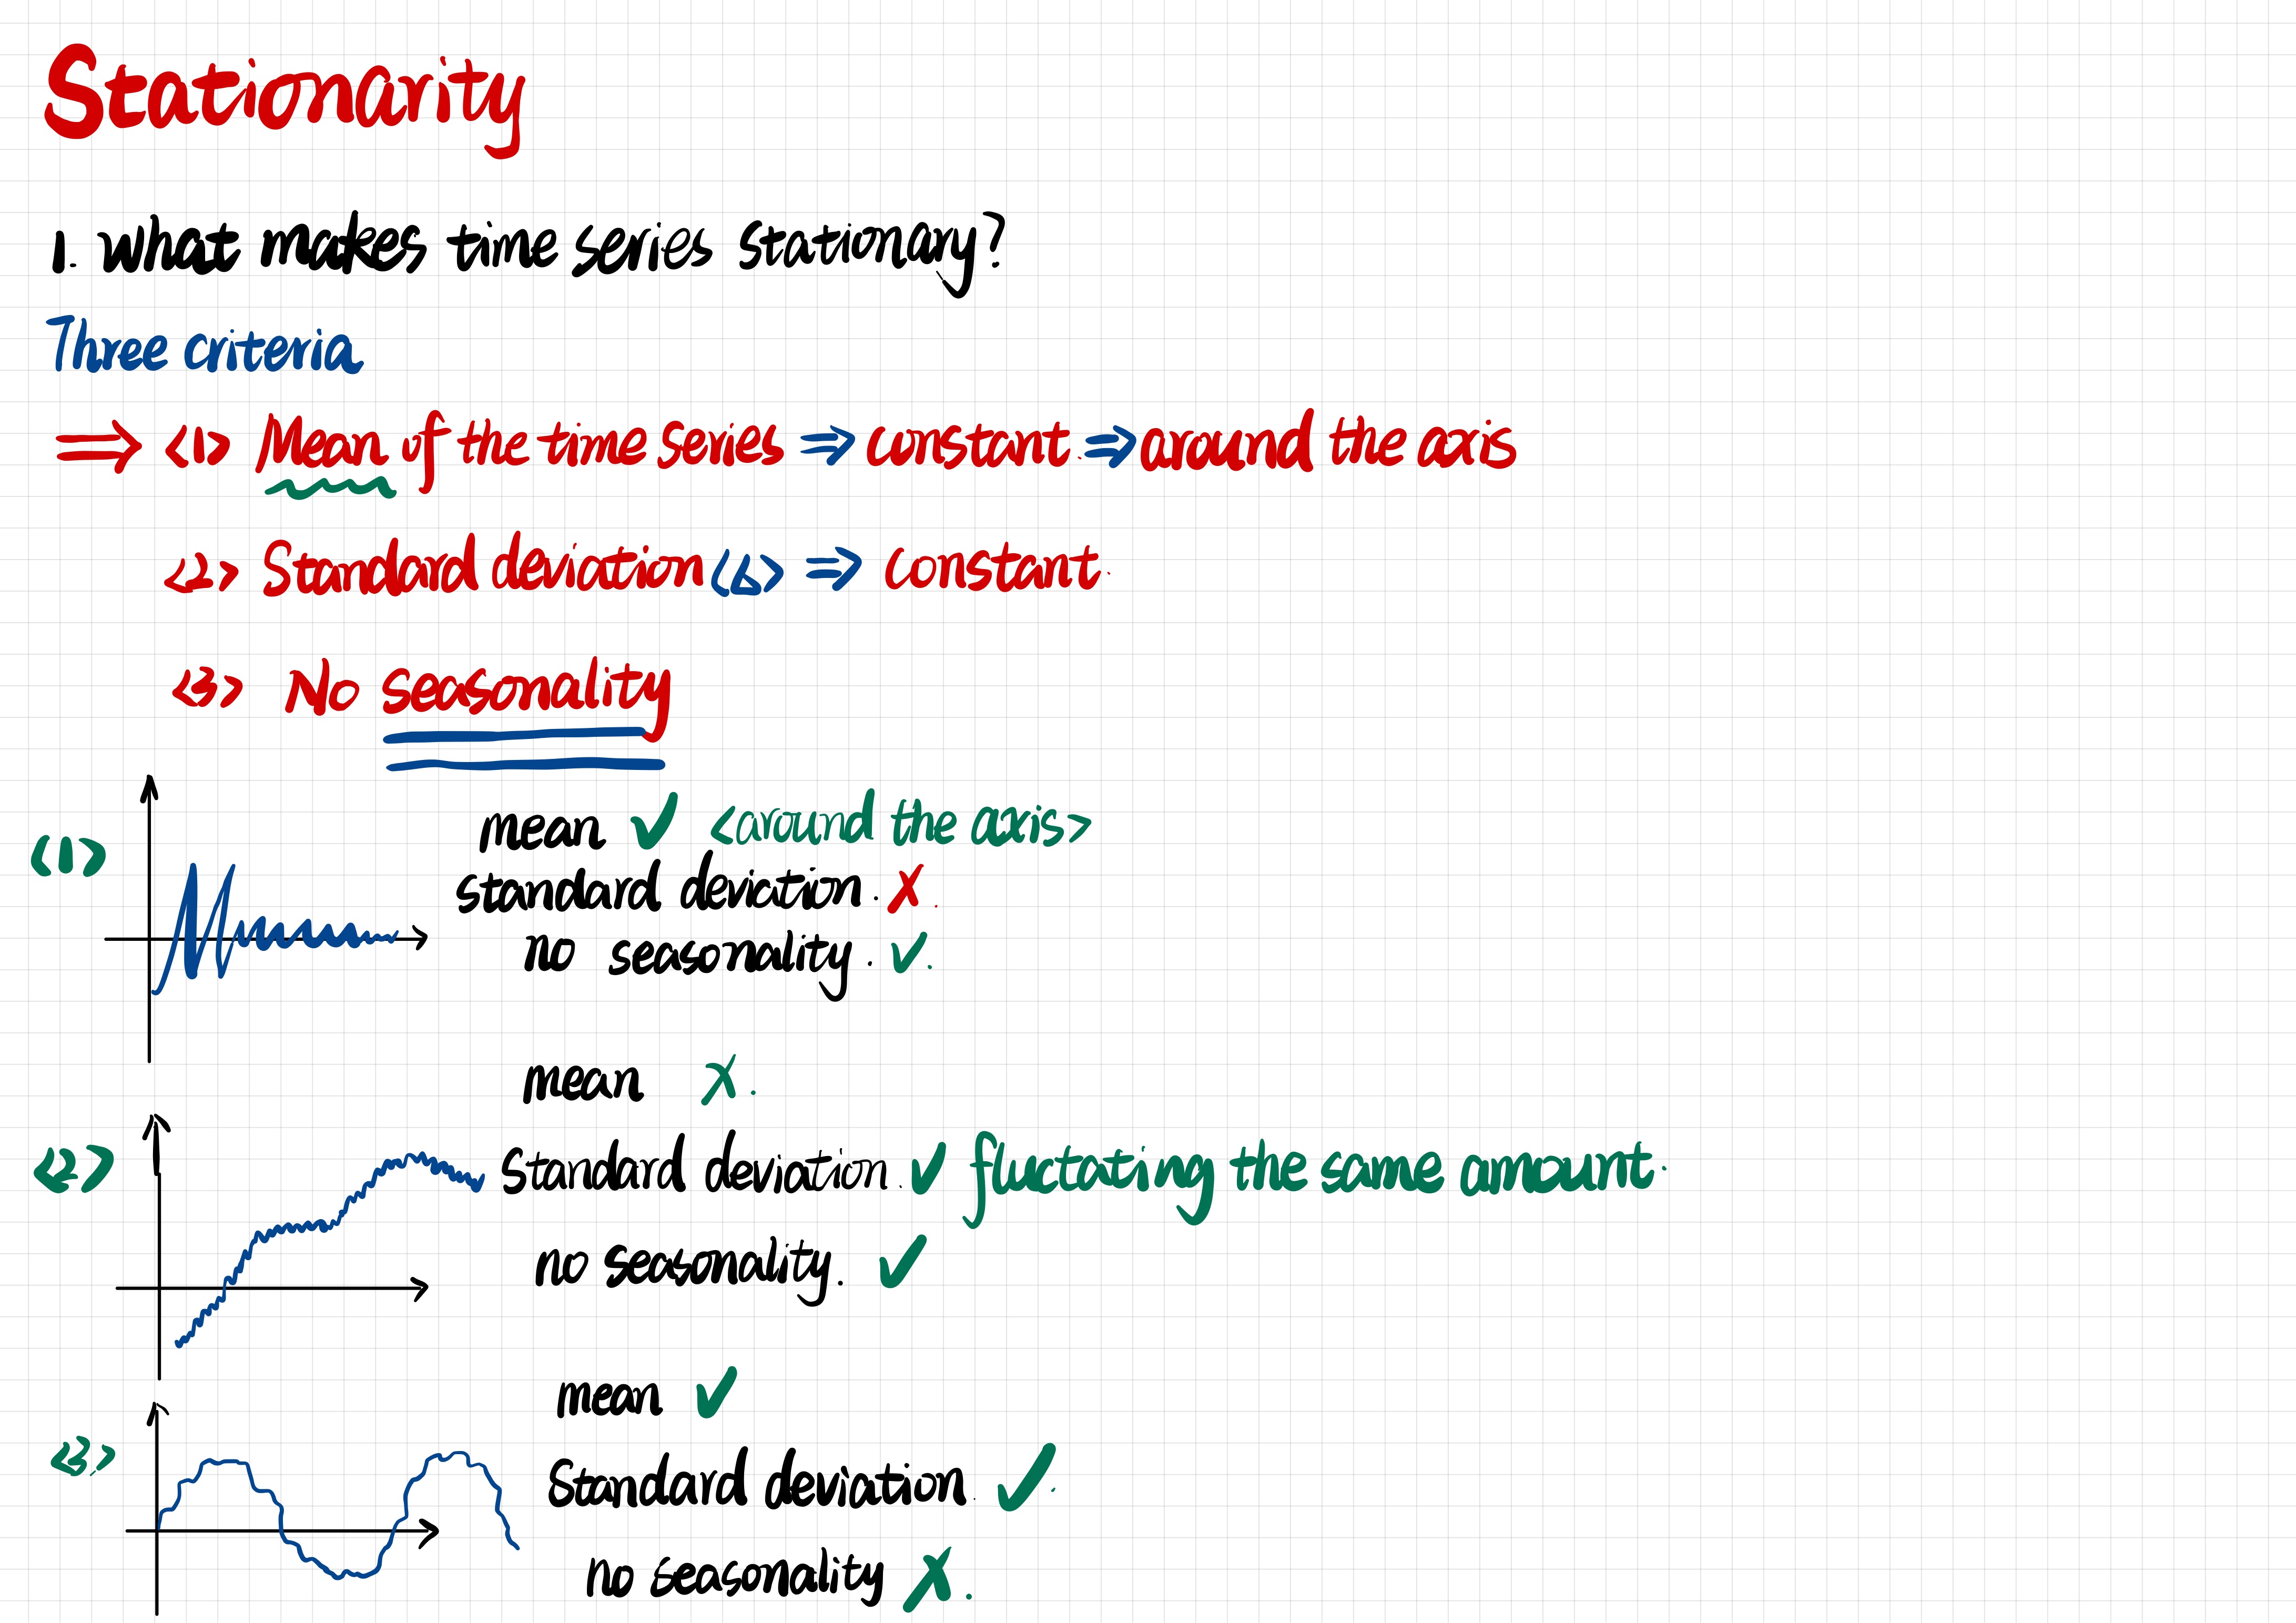 Stationarity
1. what makes time series stationary?
Three criteria
⇒ <1> Mean of the time series ⇒ constant. ⇒ around the axis
<2> Standard deviation <6> ⇒ constant.
<3> No seasonality
<1>
mean ✓ <around the axis>
standard deviation. ✗.
no seasonality. ✓.
mean ✗.
<2>
Standard deviation. ✓ fluctating the same amount.
no seasonality. ✓
mean ✓
<3>
Standard deviation. ✓.
no seasonality ✗.